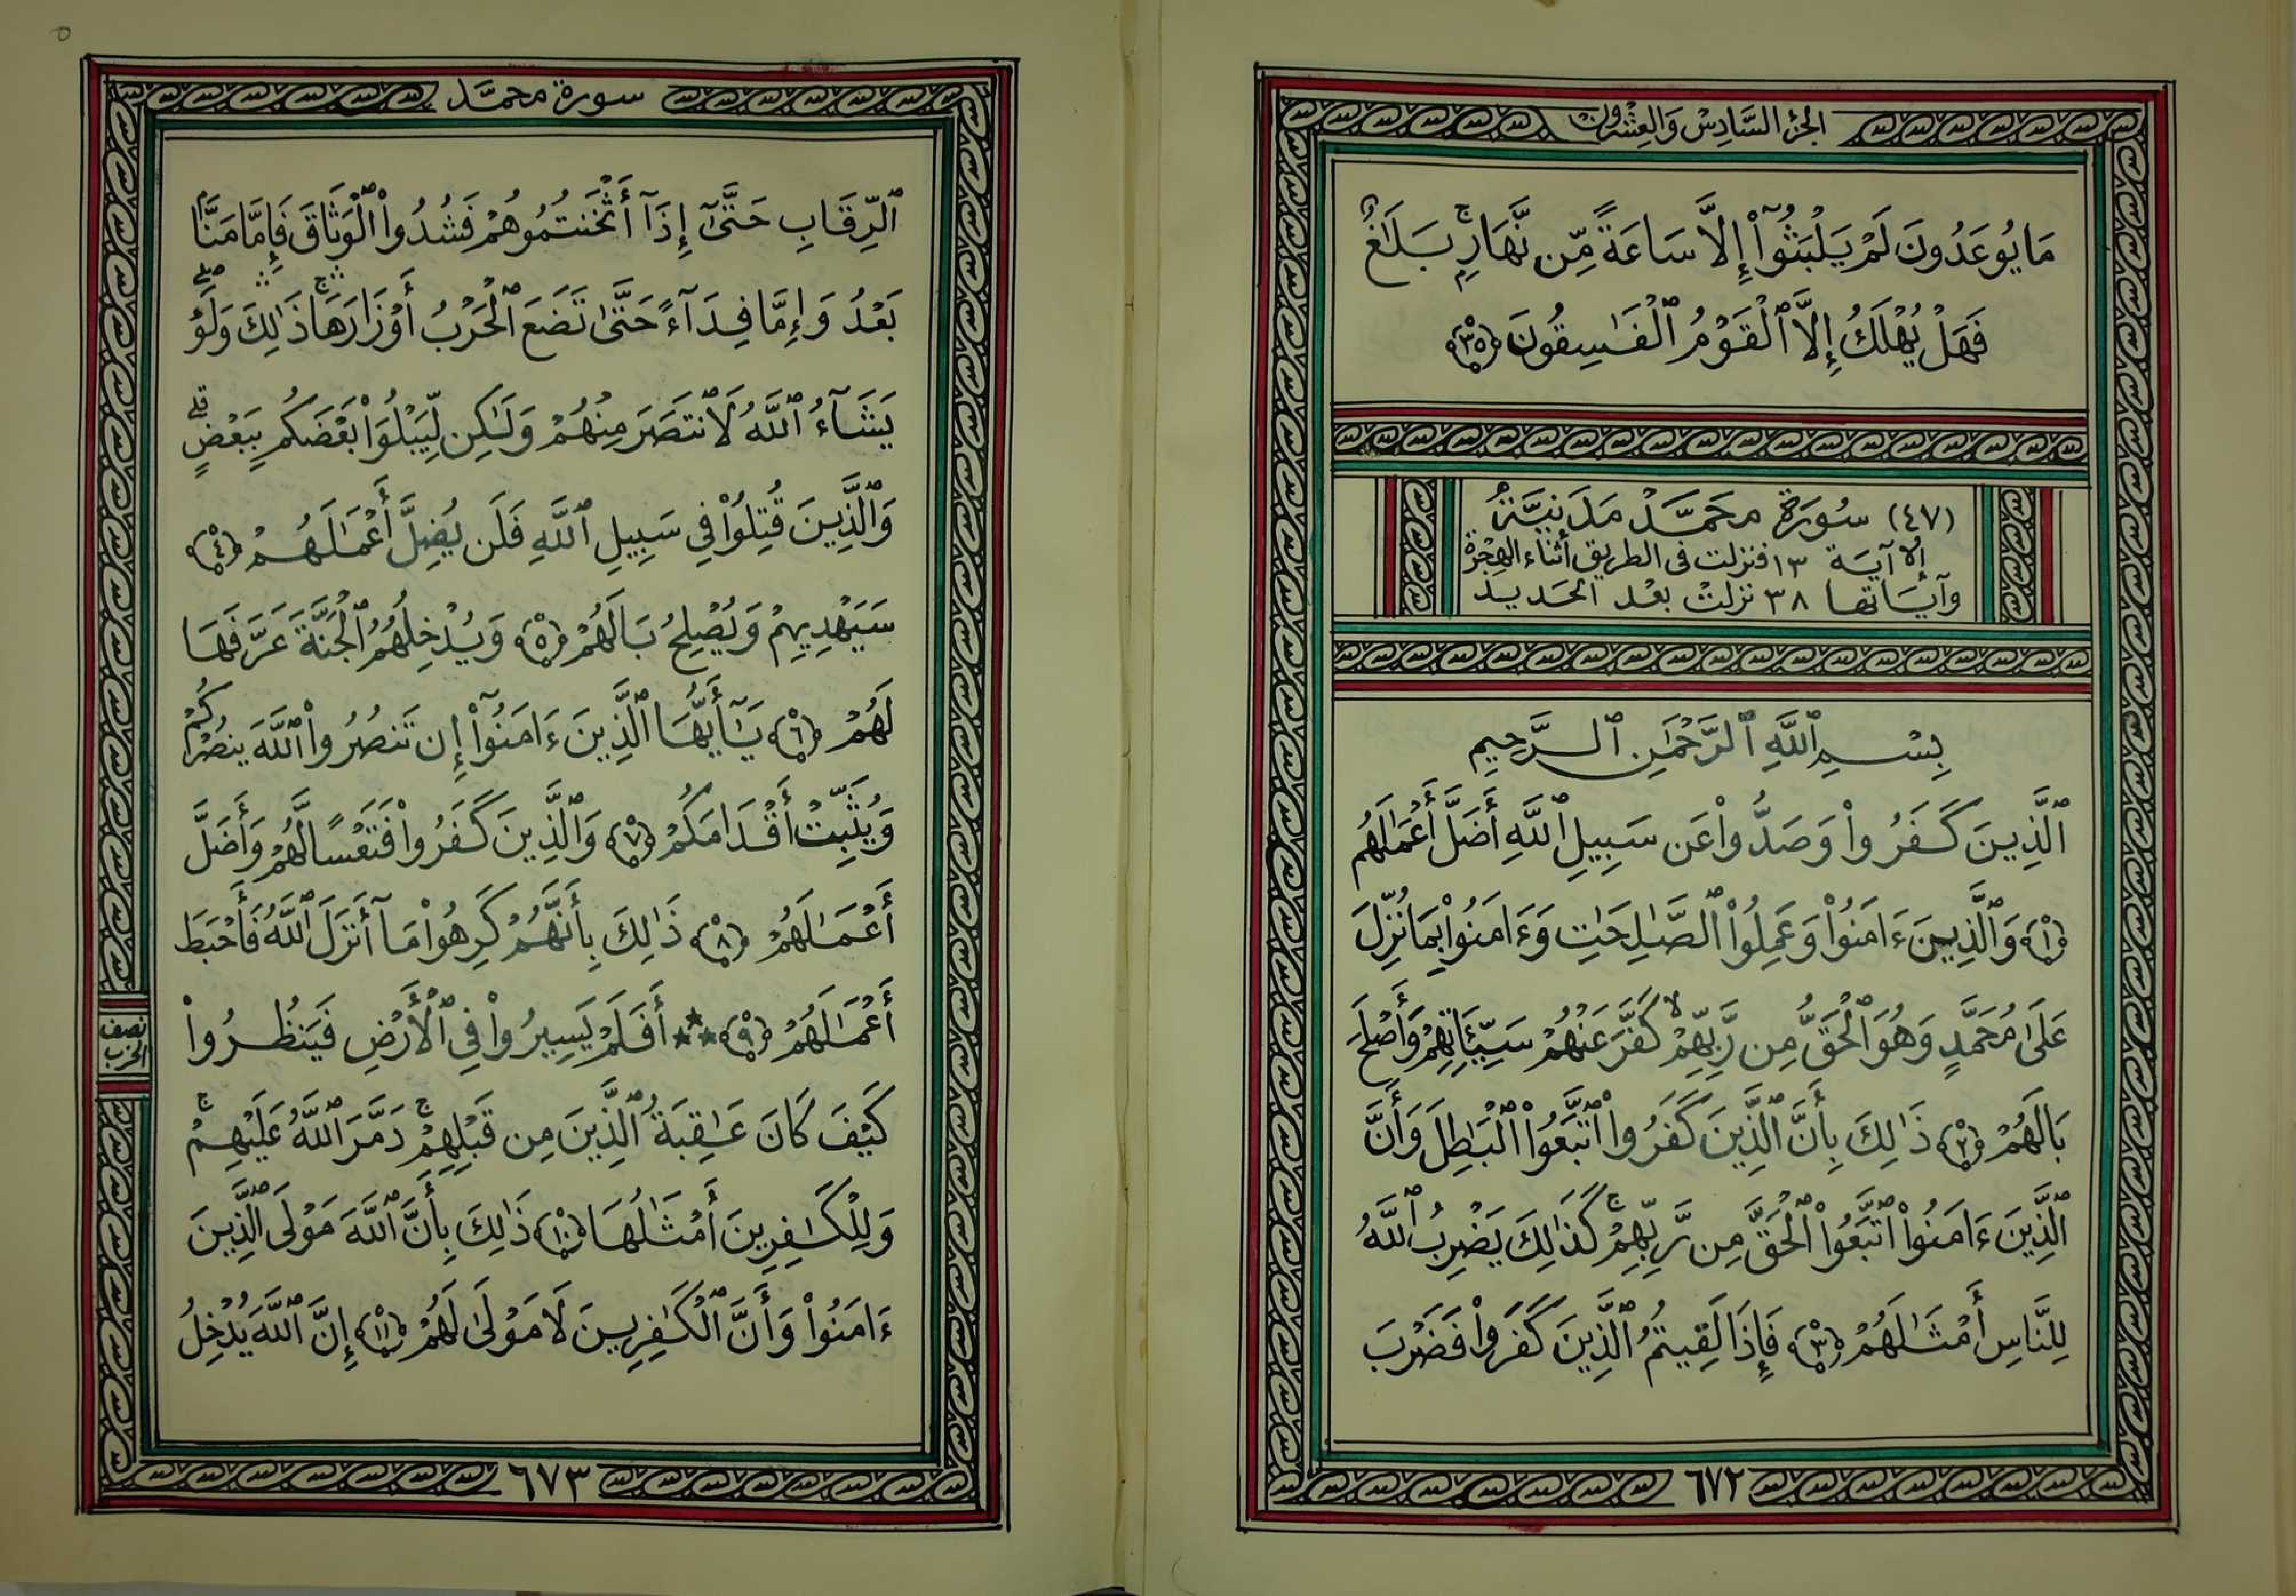 الجزء السَّادِسْ وَالعِشْرُونَ
مَا يُوعَدُونَ لَمْ يَلْبَثُوٓاْ إِلَّا سَاعَةً مِّن نَّهَارِۭ ۚ بَلَٰغٌ ۚ
فَهَلْ يُهْلَكُ إِلَّا ٱلْقَوْمُ ٱلْفَٰسِقُونَ ﴿٣٥﴾
(٤٧) سُورَة محَمَّد مَدَنِيَّةٌ
إلا آيَة ١٣ فنزلت فى الطريق أثناء الهِجْرَة
وآيَاتها ٣٨ نزلتْ بعْد الحَديد
بِسْمِ ٱللَّهِ ٱلرَّحْمَٰنِ ٱلرَّحِيمِ
ٱلَّذِينَ كَفَرُواْ وَصَدُّواْ عَن سَبِيلِ ٱللَّهِ أَضَلَّ أَعْمَٰلَهُمْ
﴿١﴾ وَٱلَّذِينَ ءَامَنُواْ وَعَمِلُواْ ٱلصَّٰلِحَٰتِ وَءَامَنُواْ بِمَا نُزِّلَ
عَلَىٰ مُحَمَّدٍ وَهُوَ ٱلْحَقُّ مِن رَّبِّهِمْ ۙ كَفَّرَ عَنْهُمْ سَيِّـَٔاتِهِمْ وَأَصْلَحَ
بَالَهُمْ ﴿٢﴾ ذَٰلِكَ بِأَنَّ ٱلَّذِينَ كَفَرُواْ ٱتَّبَعُواْ ٱلْبَٰطِلَ وَأَنَّ
ٱلَّذِينَ ءَامَنُواْ ٱتَّبَعُواْ ٱلْحَقَّ مِن رَّبِّهِمْ ۚ كَذَٰلِكَ يَضْرِبُ ٱللَّهُ
لِلنَّاسِ أَمْثَٰلَهُمْ ﴿٣﴾ فَإِذَا لَقِيتُمُ ٱلَّذِينَ كَفَرُواْ فَضَرْبَ
٦٧٢
سورة محمَّد
ٱلرِّقَابِ حَتَّىٰٓ إِذَآ أَثْخَنتُمُوهُمْ فَشُدُّواْ ٱلْوَثَاقَ فَإِمَّا مَنًّۢا
بَعْدُ وَإِمَّا فِدَآءً حَتَّىٰ تَضَعَ ٱلْحَرْبُ أَوْزَارَهَا ۛ ۚ ذَٰلِكَ ۛ وَلَوْ
يَشَآءُ ٱللَّهُ لَٱنتَصَرَ مِنْهُمْ وَلَٰكِن لِّيَبْلُوَاْ بَعْضَكُم بِبَعْضٍ ۗ
وَٱلَّذِينَ قُتِلُواْ فِي سَبِيلِ ٱللَّهِ فَلَن يُضِلَّ أَعْمَٰلَهُمْ ﴿٤﴾
سَيَهْدِيهِمْ وَيُصْلِحُ بَالَهُمْ ﴿٥﴾ وَيُدْخِلُهُمُ ٱلْجَنَّةَ عَرَّفَهَا
لَهُمْ ﴿٦﴾ يَٰٓأَيُّهَا ٱلَّذِينَ ءَامَنُوٓاْ إِن تَنصُرُواْ ٱللَّهَ يَنصُرْكُمْ
وَيُثَبِّتْ أَقْدَامَكُمْ ﴿٧﴾ وَٱلَّذِينَ كَفَرُواْ فَتَعْسًا لَّهُمْ وَأَضَلَّ
أَعْمَٰلَهُمْ ﴿٨﴾ ذَٰلِكَ بِأَنَّهُمْ كَرِهُواْ مَآ أَنزَلَ ٱللَّهُ فَأَحْبَطَ
أَعْمَٰلَهُمْ ﴿٩﴾ ★★★ أَفَلَمْ يَسِيرُواْ فِي ٱلْأَرْضِ فَيَنظُرُواْ
نصف
الحزب
كَيْفَ كَانَ عَٰقِبَةُ ٱلَّذِينَ مِن قَبْلِهِمْ ۚ دَمَّرَ ٱللَّهُ عَلَيْهِمْ ۚ
وَلِلْكَٰفِرِينَ أَمْثَٰلُهَا ﴿١٠﴾ ذَٰلِكَ بِأَنَّ ٱللَّهَ مَوْلَى ٱلَّذِينَ
ءَامَنُواْ وَأَنَّ ٱلْكَٰفِرِينَ لَا مَوْلَىٰ لَهُمْ ﴿١١﴾ إِنَّ ٱللَّهَ يُدْخِلُ
٦٧٣